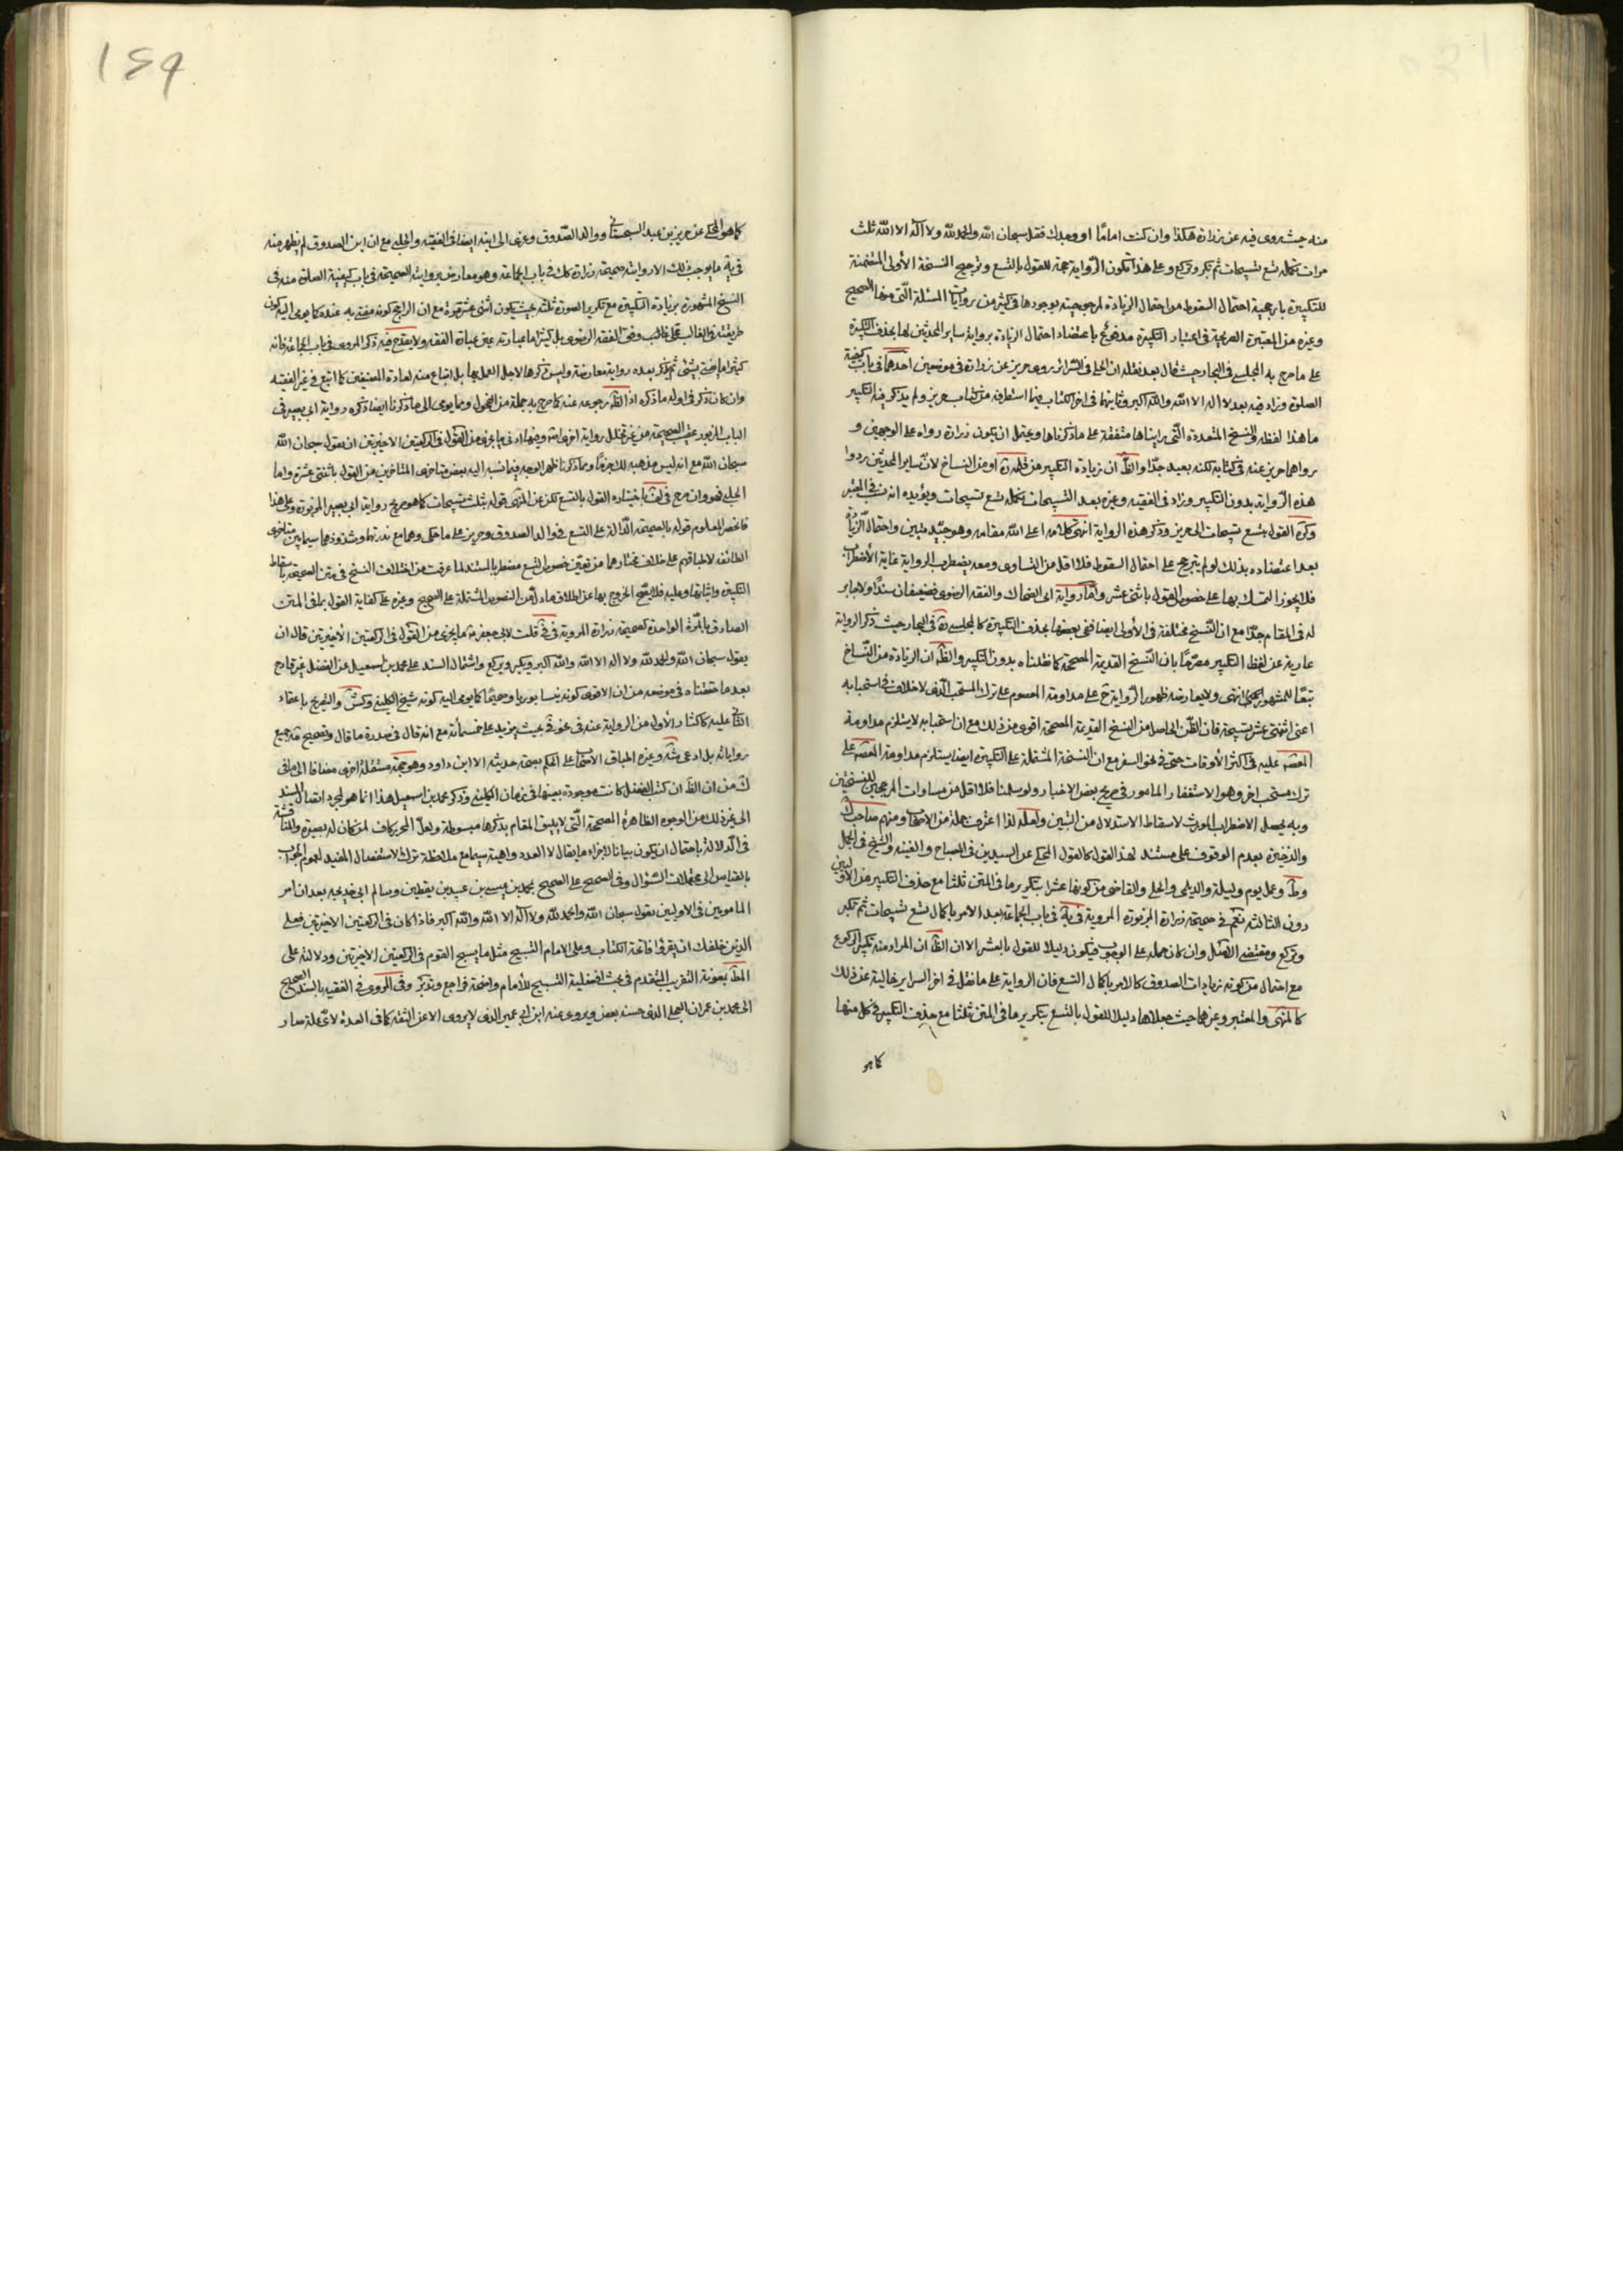 منه حيث روى فيه عن زرارة هكذا وان كنت امامًا او وحدك فقل سبحان الله والحمد لله ولا اله الا الله ثلث
مرات تكمله تسع تسبيحات ثم تكبر وتركع وعلى هذا تكون الرواية حجة للقول بالتسع وترجيح النسخة الأولى المتضمنة
للتكبيرة بارجحية احتمال السقوط من احتمال الزيادة لمرجوحيته بوجودها في كثير من روايات المسئلة التي منها الصحيح
وغيره من المعتبرة الصريحة في اعتبار التكبيرة مدفوع باعتضاد احتمال الزيادة برواية ساير المحدثين لها بحذف التكبيرة
على ما صرح به المجلسي في البحار حيث قال بعد نقله ان الحلي في السرائر روى حريز عن زرارة في موضعين احدهما في باب كيفية
الصلوة وزاد فيه بعد لا اله الا الله والله اكبر وثانيهما في اخر الكتاب فيما استطرفه من كتاب حريز ولم يذكر فيه التكبير
ما هذا لفظه والنسخ المتعددة التي رايناها متفقة على ما ذكرناها ويحتمل ان يكون زرارة رواه على الوجهين و
رواهما حريز عنه في كتابه لكنه بعيد جدًا والظ ان زيادة التكبير من قلمه ره او من النساخ لان ساير المحدثين رووا
هذه الرواية بدون التكبير وزاد في الفقيه وغيره بعد التسبيحات تكمله تسع تسبيحات ويؤيده انه نسب في المعتبر
وكره القول بتسع تسبيحات الى حريز وذكر هذه الرواية انتهى كلامه اعلى الله مقامه وهو جيد متين واحتمال الزيادة
بعد اعتضاده بذلك لو لم يترجح على احتمال السقوط فلا اقل من التساوى ومعه يضطرب الرواية غاية الأضطراب
فلا يجوز التمسك بها على خصوص القول باثنتى عشر واما رواية ابى الضحاك والفقه الرضوى فضعيفان سندًا ولا جابر
له في المقام جدًا مع ان النسخ مختلفة في الأولى ايضا ففى بعضها بحذف التكبيرة كالمجلسى ره في البحار حيث ذكر الرواية
عارية عن لفظ التكبير مصرحًا بان النسخ القديمة المصححة كما نقلناه بدون التكبير والظ ان الزيادة من النساخ
تبعًا للمشهور انتهى ولا يعارضه ظهور الرواية ح على مداومة المعصوم على ترك المستحب الذى لا خلاف في استحبابه
اعنى اثنتى عشر تسبيحة فان الظن الحاصل من النسخ القديمة المصححة اقوى من ذلك مع ان استحبابه لا يستلزم مداومة
المعصوم عليه في اكثر الأوقات حتى في نحو السفر مع ان النسخة المشتملة على التكبيرة ايضا يستلزم مداومة المعصوم على
ترك مستحب اخر وهو الاستغفار المامور في صريح بعض الاخبار ولو سلمنا فلا اقل من مساوات المرجحين للنسختين
وبه يحصل الاضطراب المورث لاسقاط الاستدلال من البين ولعله لذا اعترف جملة من الاصحاب ومنهم صاحب
والذخيرة بعدم الوقوف على مستند لهذ القول كالقول المحكى عن السيدين في المصباح والغنيه والشيخ في الجمل
وط وعمل يوم وليلة والديلمى والحلى والقاضى من كونها عشرا بتكرير ما في المتن ثلثا مع حذف التكبير من الاوليين
دون الثالثه نعم في صحيحة زرارة المزبورة المروية في يه في باب الجماعة بعد الامر باكمال تسع تسبيحات ثم تكبر
وتركع ومقتضى الامتثال وان كان حمله على الوجوب فيكون دليلا للقول بالعشر الا ان الظ ان المراد منه تكبير الركوع
مع احتمال من كونه زيادات الصدوق كالامر باكمال التسع فان الرواية على ما نقل في اخر السراير خالية عن ذلك
كالمنتهى والمعتبر وغيرهما حيث جعلاها دليلا للقول بالتسع بتكرير ما في المتن ثلثا مع حذف التكبير في كل منها
كما هو
١٤٩
كما هو المحكى عن حريز بن عبد السجستانى ووالد الصدوق وعزى الى ابنه ايضا في الفقيه والحلبى مع ان ابن الصدوق لم يظهر منه
في يه ما يوجب ذلك الا روايته صحيحة زرارة كك في باب الجماعة وهو معارض بروايته الصحيحة في باب كيفية الصلوة منه في
النسخ المشهورة بزيادة التكبيرة مع تكرير الصورة ثلثه بحيث يكون اثنى عشرة مرة مع ان الراجح كونه مفتى به عنده كما يومى اليه كون
طريقته في الغالب وفى الفقه الرضوى بل كثيرا ما عبارته عين عبارة الفقه ولا يقدح فيه ذكر المروى في باب الجماعة فانه
كثيرا ما يفتى بشئ ثم يذكر بعده رواية معارضة وليس ذكرها لاجل العمل بها بل اتباع منه لعادة المصنفين كما اتبع في غير الفقيه
وان كان ذكر في اوله ما ذكره اذ الظ رجوعه عنه كما صرح به جملة من الفحول ومما يومى الى ما ذكرنا ايضا ذكره رواية ابى بصير في
الباب المزبور عقيب الصحيحة من غير تخلل رواية اخرى وفيها ادنى ما يجزى من القول في الركعتين الاخيرتين ان يقول سبحان الله
سبحان الله مع انه ليس مذهبه لك جزمًا ومما ذكرنا ظهر الوجه فيما نسبه اليه بعض متاخرى المتاخرين من القول باثنتى عشرة واما
الحلبى فهو وان صرح في لف باختياره القول بالتسع لكن عن المنتهى قوله بثلث تسبيحات كما هو صريح رواية ابى بصير المزبورة وعلى هذا
فانحصر المعلوم قوله بالصحيحة الدالة على التسع في والد الصدوق وحريز على ما حكى وهما مع ندرتهما وشذوذهما سيما بين متاخرى
الطائفه لاطباقهم على خلاف مختارهما من تعيين خصوص التسع مضطربا السند لما عرفت من اختلاف النسخ في متن الصحيحة باسقاط
التكبيرة واثباتها وعليه فلا يصح الخروج بها عن اطلاق ما دل من النصوص المشتملة على الصحيح وغيره على كفاية القول بما في المتن
الصادق بالمرة الواحدة كصحيحة زرارة المروية في قلت لابى جعفر ما يجزى من القول في الركعتين الأخيرتين قال ان
يقول سبحان الله والحمد لله ولا اله الا الله والله اكبر ويكبر ويركع واشتمال السند على محمد بن اسمعيل عن الفضل غير قادح
بعد ما حققناه في موضعه من ان الاقوى كونه نيسابوريا وصحيحًا كما يومى اليه كونه شيخ الكلينى وكش والتصريح باعتماد
الثانى عليه كاكثار الأول من الرواية عنه في بحيث يزيد على خمسمأته مع انه قال في صدره ما قال وتصحيح جميع
رواياته بل ادعى وغيره اطباق الاصحاب على الحكم بصحة حديثه الا ابن داود وهو حجة مستقلة اخرى مضافا الى ما فى
من ان الظ ان كتب الفضل كانت موجودة بعينها في زمان الكلينى وذكر محمد بن اسمعيل هذا انما هو لمجرد اتصال السند
الى غير ذلك من الوجوه الظاهرة المصححة التى لا يليق المقام بذكرها مبسوطة ولعل التحرير كاف لمن كان له بصيرة والمناقشة
في الدلالة باحتمال ان يكون بيانا لاجزاء ما يقال لا العدد واهية سيما مع ملاحظة ترك الاستفصال المفيد لعموم الجواب
بالقياس الى محتملات السؤال وفى الصحيح على الصحيح بمحمد بن عيسى بن عبيد بن يقطين وسالم ابى خديجه بعد ان امر
المامومين في الاوليين بقول سبحان الله والحمد لله ولا اله الا الله والله اكبر فاذا كان في الركعتين الاخيرتين فعلى
الذين خلفك ان يقرؤا فاتحة الكتاب وعلى الامام التسبيح مثل ما يسبح القوم في الركعتين الاخيرتين ودلالته على
المط بمعونة التقريب المتقدم في بحث افضلية التسبيح للأمام واضحة فراجع وتدبر وفى المروى في الفقيه بالسند الصحيح
الى محمد بن عمران العجلى الذى حسنه بعض ويروى عنه ابن ابى عمير الذى لا يروى الا عن الثقه كما في العدة لاى علة صار